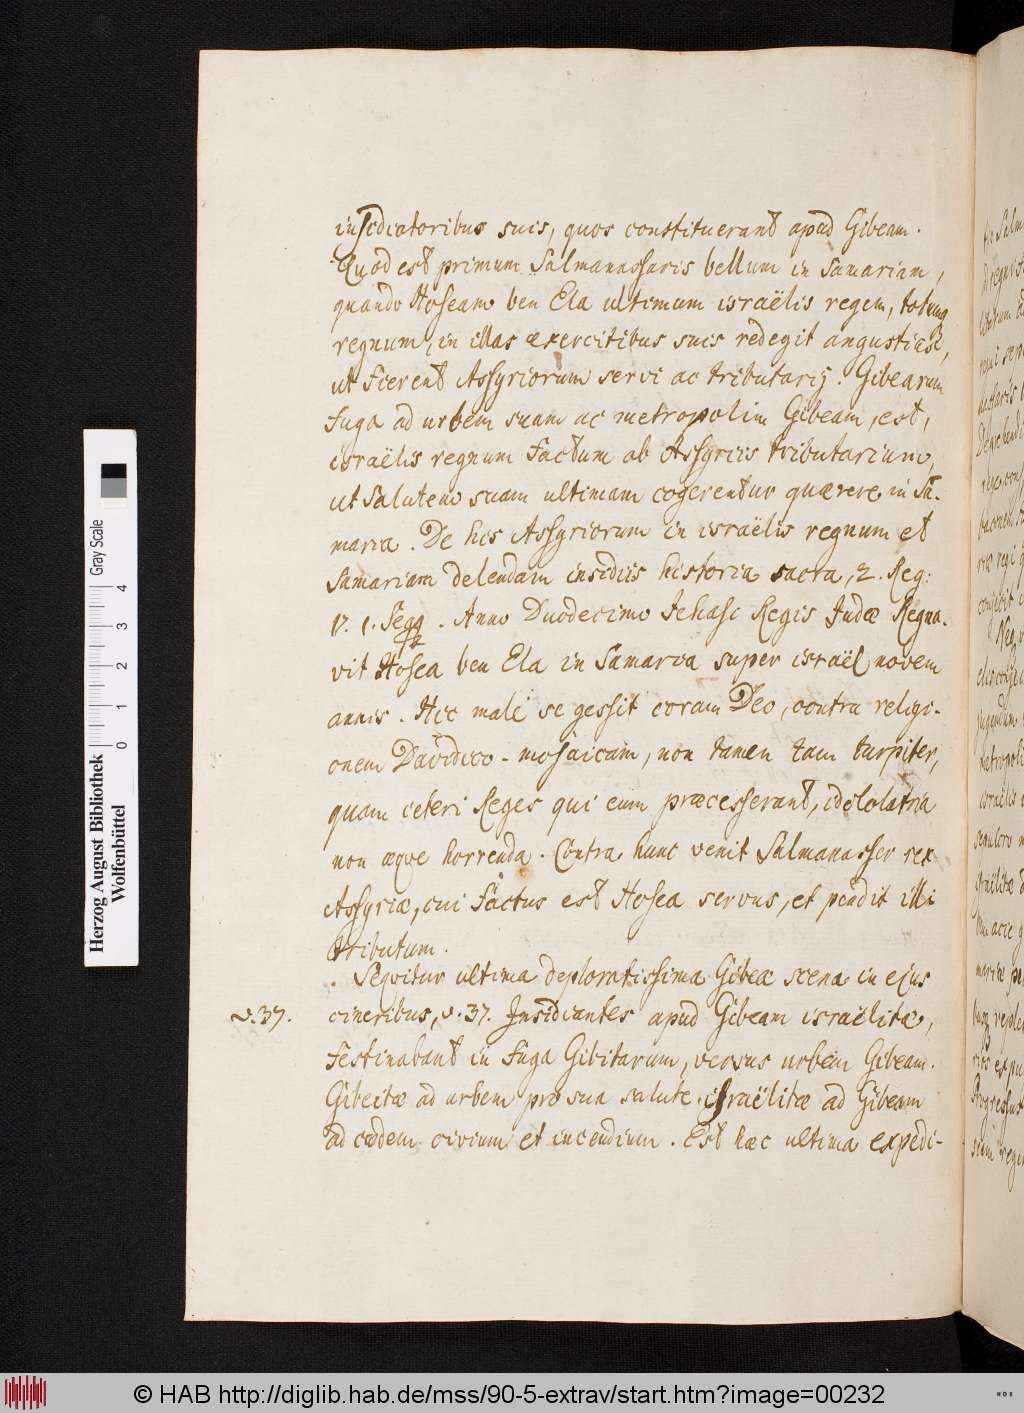 insidiatoribus suis, quos constituerant apud Gibeam.
Quod est primum Salmanassaris bellum in Samariam,
quando Hoseam ben Ela ultimum israëlis regem, totumq
regnum, in illas exercitibus suis redegit angustias,
ut fierent Assyriorum servi ac tributarij. Gibearum
fuga ad urbem suam ac metropolim Gibeam, est,
israëlis regnum factum ab Assyriis tributarium,
ut salutem suam ultimam cogerentur quærere in Sa-
maria. De his Assyriorum in israëlis regnum et
Samariam delendam insidiis historia sacra, 2. Reg:
17. 1. seqq. Anno Duodecimo Jehasi Regis Judæ Regna-
vit Hosea ben Ela in Samaria super israël novem
annis. Hic male se gessit coram Deo, contra religi-
onem Davidico-mosaicam, non tamen tam turpiter,
quam ceteri Reges qui eum præcesserant, idololatria
non æqve horrenda. Contra hunc venit Salmanasser rex
Assyriæ, cui factus est Hosea servus, et pendit illi
tributum.
Seqvitur ultima deploratissima Gibeæ scena in ejus
v.37. cineribus, v. 37. Insidiantes apud Gibeam israëlitæ,
festinabant in fuga Gibitarum, versus urbem Gibeam.
Gibeitæ ad urbem pro sua salute israëlitæ ad Gibeam
ad cædem civium et incendium. Est hæc ultima expedi-
Herzog August Bibliothek
Wolfenbüttel
0 1 2 3 4
Gray Scale
© HAB http://diglib.hab.de/mss/90-5-extrav/start.htm?image=00232